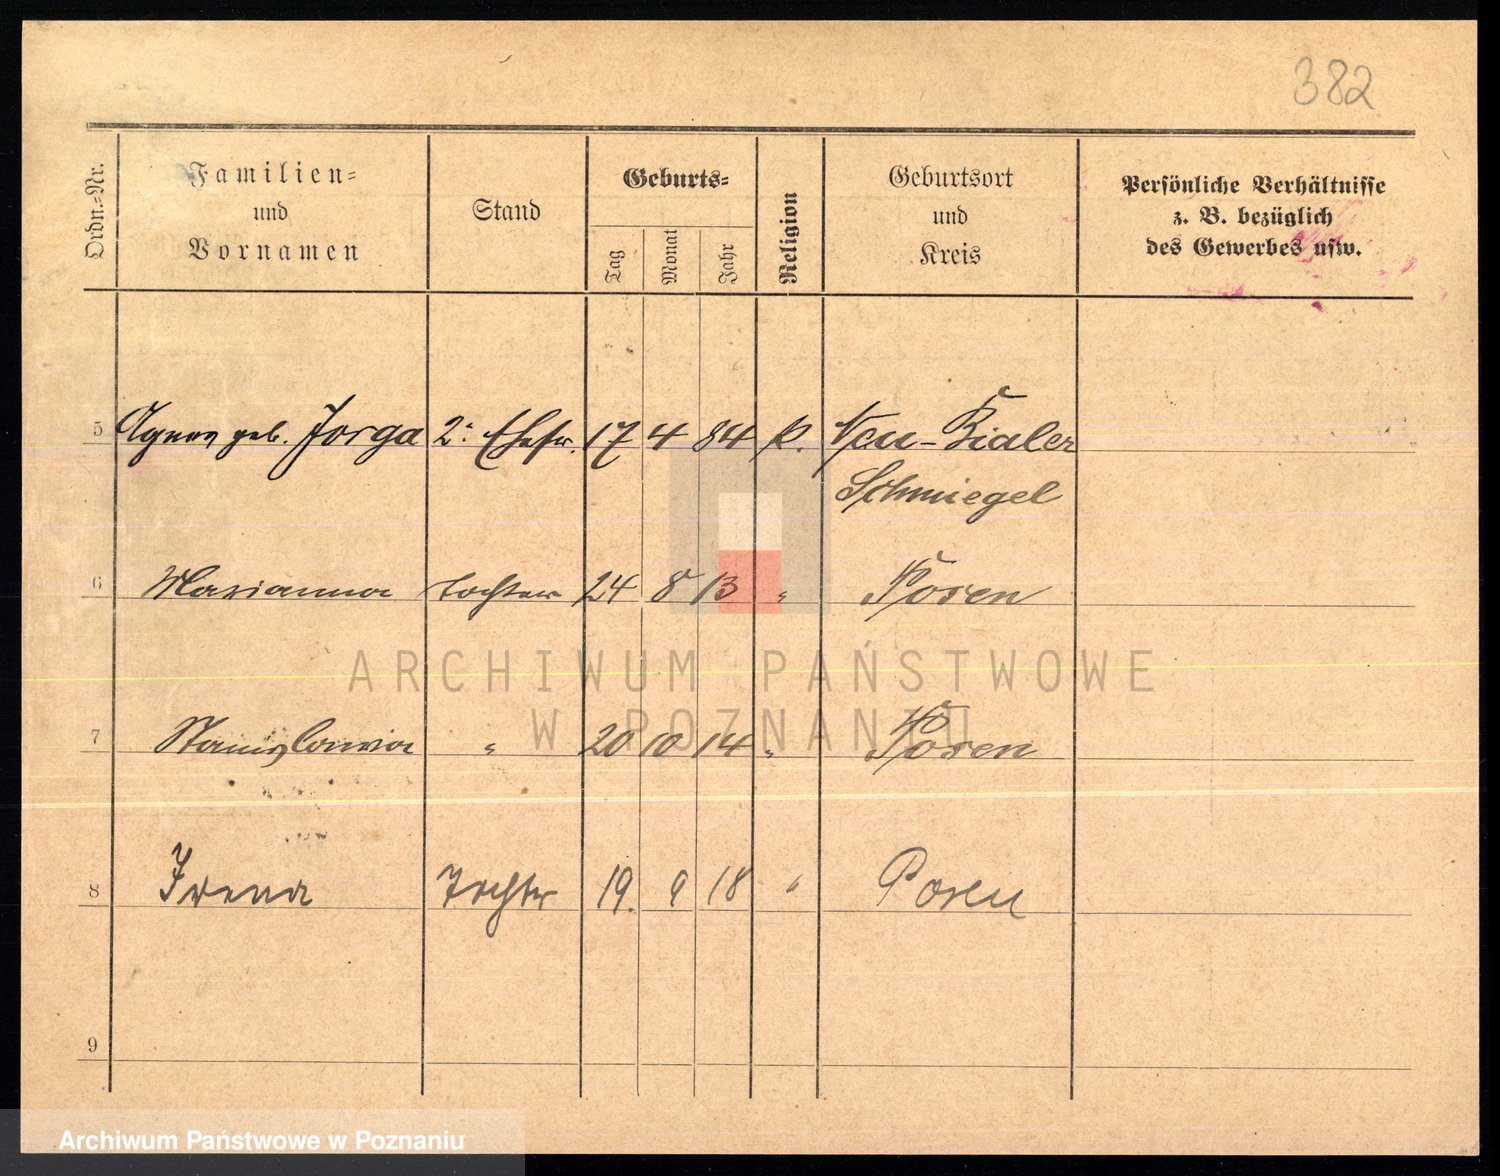 382
Ordn.-Nr.
Familien-
und
Vornamen
Stand
Geburts-
Tag
Monat
Jahr
Religion
Geburtsort
und
Kreis
Persönliche Verhältnisse
z. B. bezüglich
des Gewerbes usw.
5 Agnes geb. Jorga 2. Ehefr. 17 4 84 k. Neu-Bialer
Schmiegel
6 Marianna Tochter 24 8 13 " Posen
ARCHIWUM PAŃSTWOWE
W POZNANIU
7 Stanislawa " 20 10 14 " Posen
8 Irena Tochter 19. 9 18 " Posen
9
Archiwum Państwowe w Poznaniu